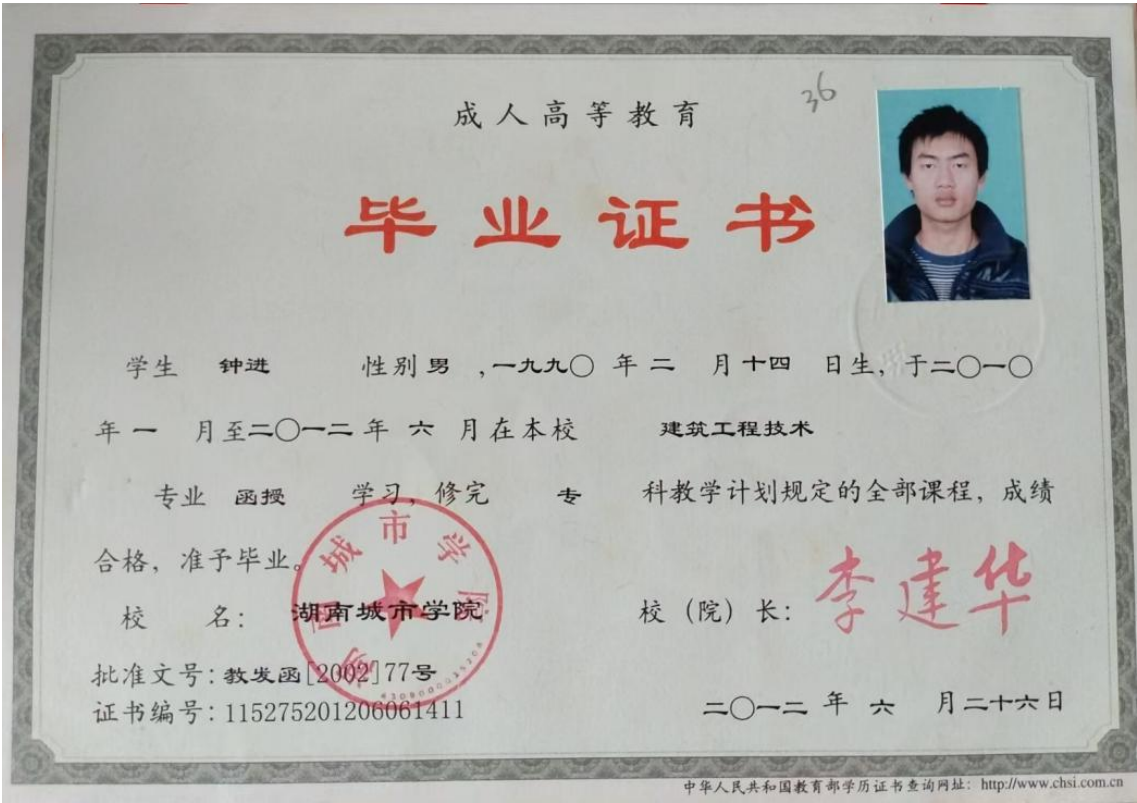 36
成人高等教育
毕业证书
学生 钟进 性别 男 ,一九九〇 年 二 月 十四 日生, 于二〇一〇
年 一 月至二〇一二 年 六 月在本校 建筑工程技术
专业 函授 学习, 修完 专 科教学计划规定的全部课程, 成绩
合格, 准予毕业。
校 名: 湖南城市学院
校 (院) 长: 李建华
湖南城市学院
批准文号: 教发函[2002]77号
证书编号: 115275201206061411
二〇一二 年 六 月二十六日
中华人民共和国教育部学历证书查询网址: http://www.chsi.com.cn